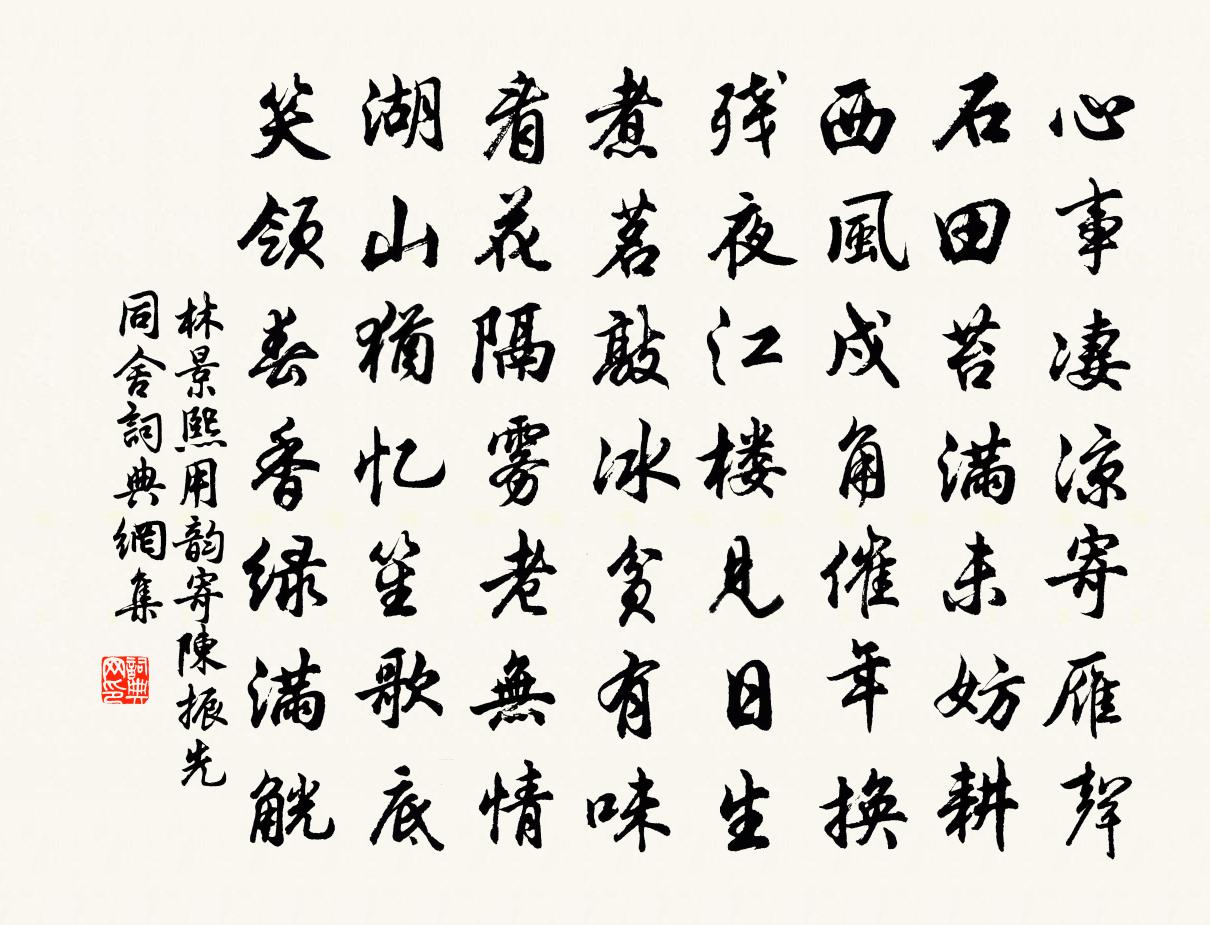 心事凄凉寄雁聲
石田苔满未妨耕
西風戍角催年換
残夜江楼見日生
煮茗敲冰貧有味
看花隔雾老無情
湖山猶忆笙歌底
笑領春香緑满觥
林景熙用韵寄陳振先
同舍詞典網集
詞典网印